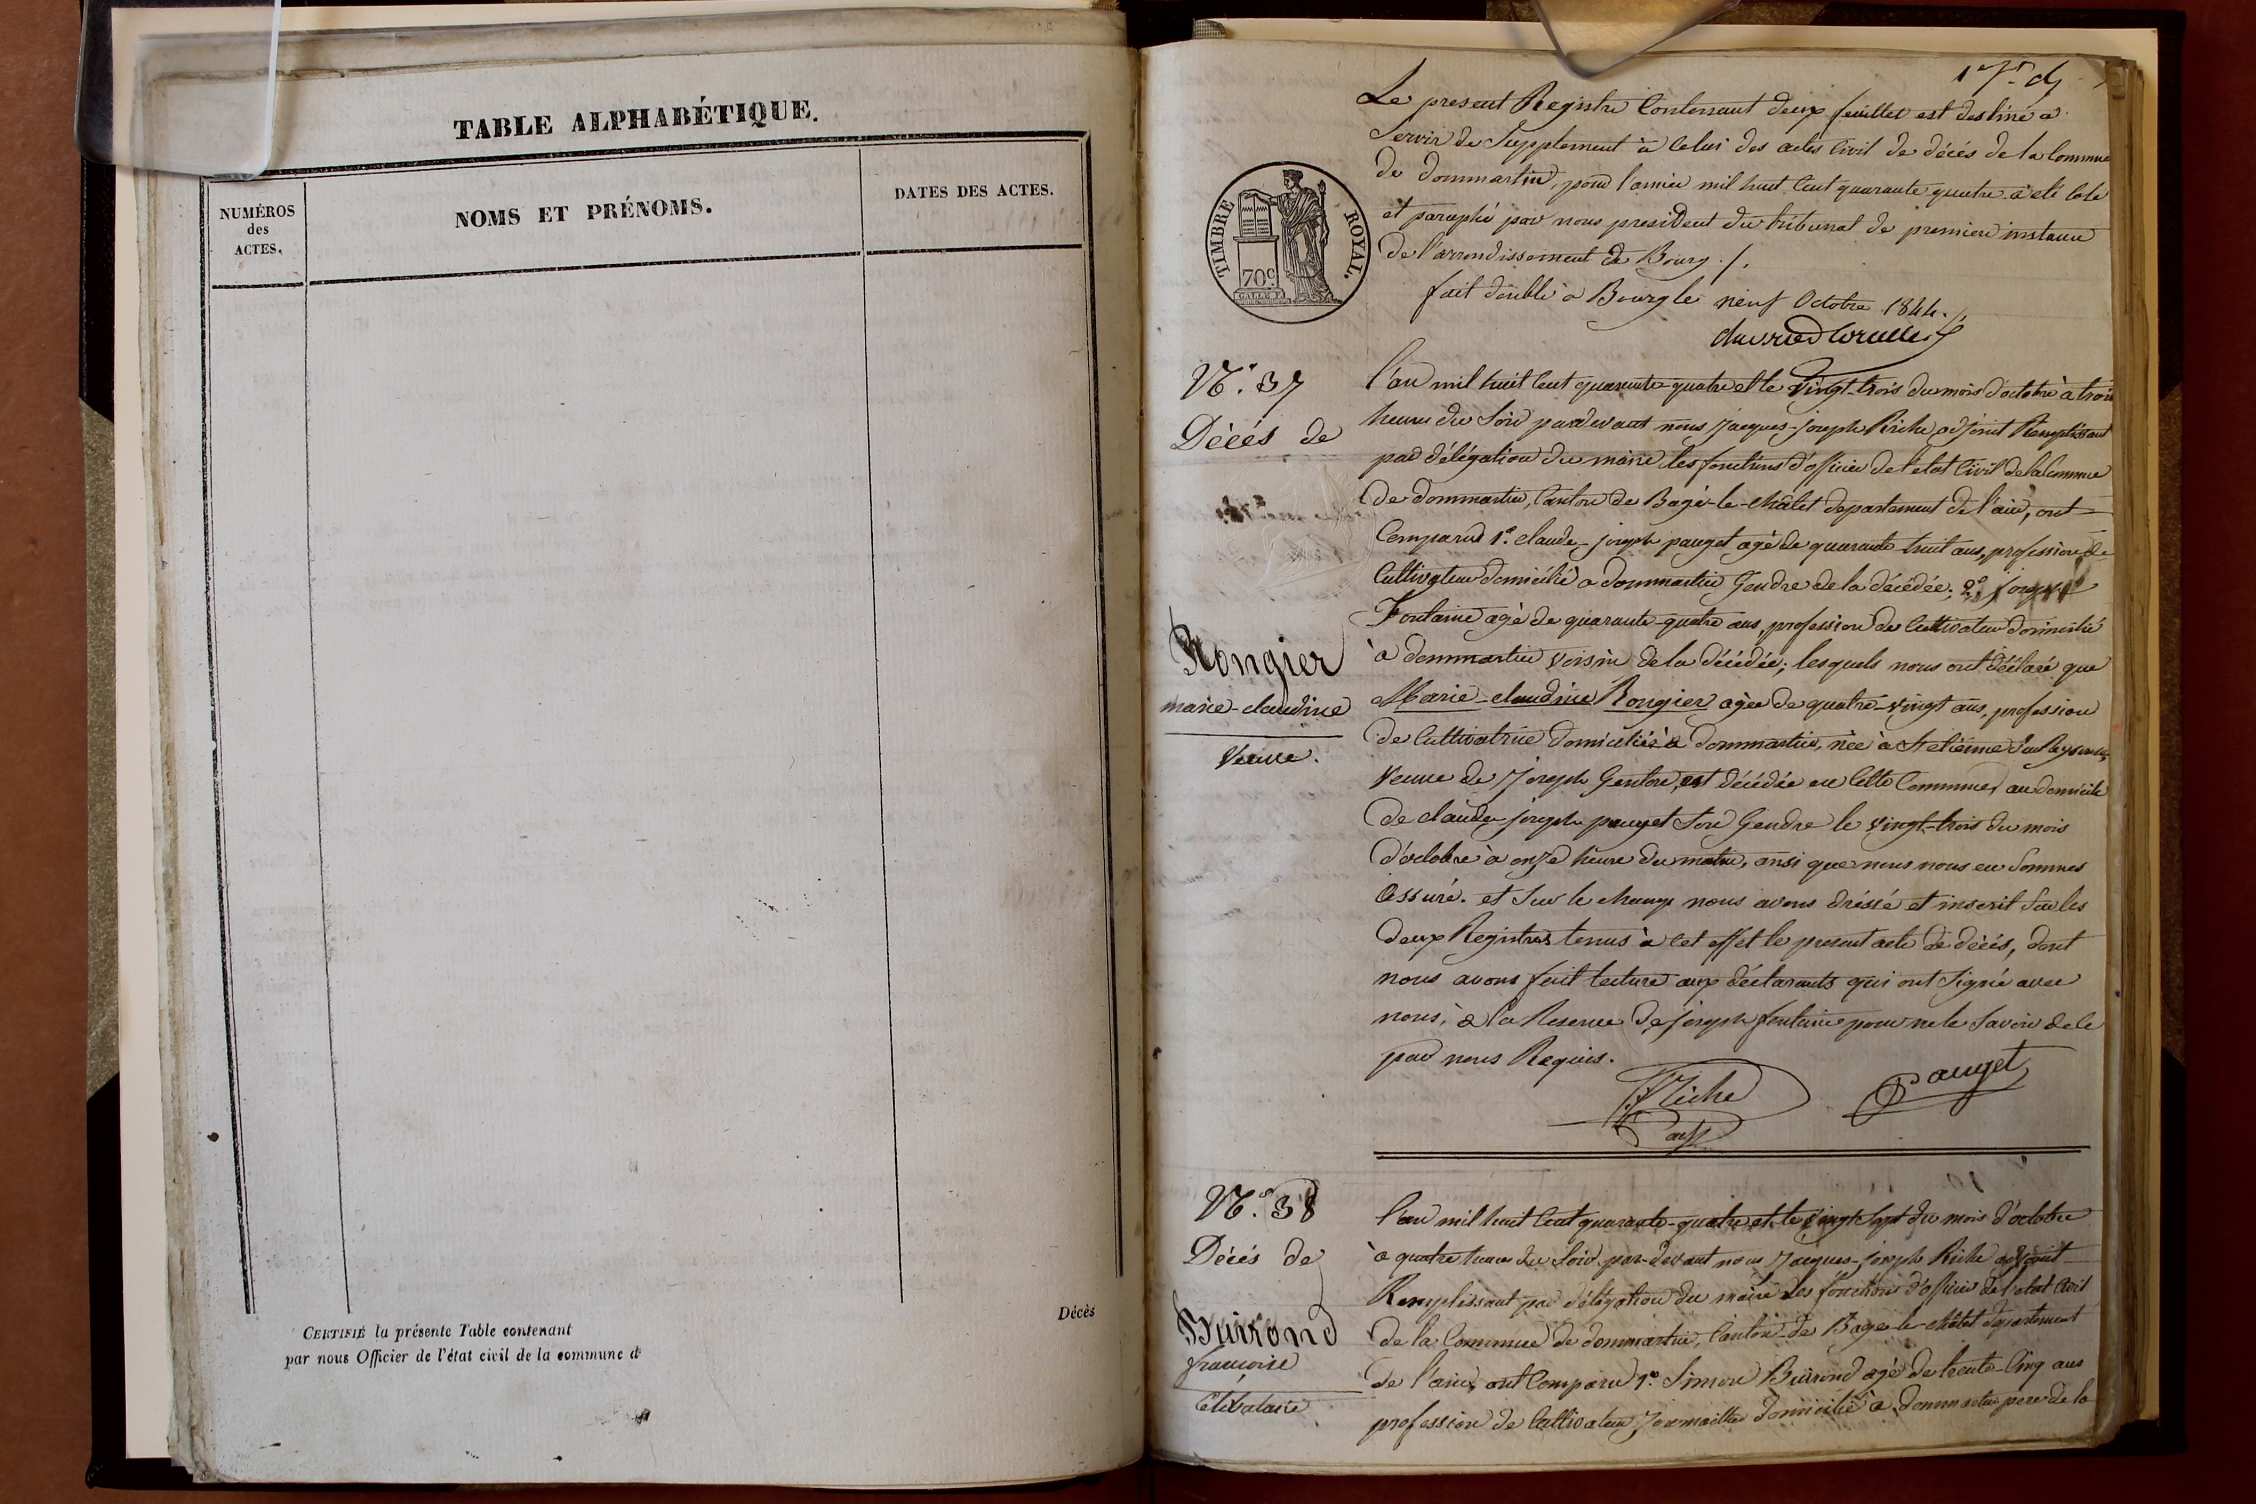 TABLE ALPHABÉTIQUE.
NUMÉROS
des
ACTES.
NOMS ET PRÉNOMS.
DATES DES ACTES.
CERTIFIÉ la présente Table contenant
par nous Officier de l'état civil de la commune d
Décès
Le present Registre Contenant deux feuillet est destiné a
Servir de Supplement à Celui des actes Civil de décés de la Commune
de dommartin, pour l'année mil huit Cent quarante quatre a été Coté
et paraphé par nous president du tribunal de premiere instance
de l'arrondissement de Bourg ./.
fait double a Bourg le neuf Octobre 1844.
TIMBRE ROYAL.
70c
N°. 37
Décés de
Rongier
marie-claudine
Veuve.
l'an mil huit Cent quarante-quatre et le vingt-trois du mois d'octobre à trois
heures du Soir pardevant nous jacques-joseph Riche adjoint Remplissant
par délégation du maire les fonctions d'officier de l'etat Civil de la Commune
de dommartin, Canton de Bagé-le-châtel departement de l'ain, ont
Comparud 1°. claude-joseph pauget agé de quarante huit ans, profession de
Cultivateur domicilié a dommartin Gendre de la décédée; 2° joseph
Fontaine agé de quarante-quatre ans, profession de Cultivateur domicilié
à dommartin voisin de la décédée; lesquels nous ont déclaré que
Marie-claudine Rongier agée de quatre-vingt ans, profession
de Cultivatrice domiciliée à dommartin, née à St etienne
Veuve de joseph Genton, est décédée en Cette Commune, au domicile
de claude-joseph pauget Son Gendre le vingt-trois du mois
d'octobre à onze heure du matin, ansi que nous nous en Sommes
assuré. et Sur le champ nous avons dréssé et inscrit Sur les
deux Registres tenus à cet effet le present acte de décés, dont
nous avons fait lecture aux déclarants qui ont Signé avec
nous, à la Reserve de joseph fontaine pour ne le Savoir de ce
par nous Requis.
JJ Riche
Pauget
adjt
N°. 38
Décés de
Buirond
françoise
Célibataire
l'an mil huit Cent quarante-quatre et le vingt-Sept du mois d'octobre
à quatre heures du Soir par-devant nous Jacques-joseph Riche adjoint
Remplissant par délégation du maire les fonctions d'officier de l'etat Civil
de la Commune de dommartin, Canton de Bagé-le-châtel departement
de l'ain, ont Comparu 1°. Simon Buirond agé de trente-Cinq ans
profession de Cultivateur, domicilié à dommartin pere de la